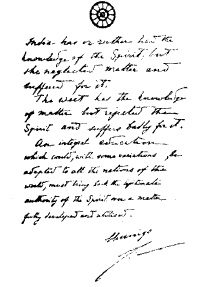 India has or rather had the
knowledge of the Spirit, but
she neglected matter and
suffered for it.
The West has the knowledge
of matter but rejected the
Spirit and suffers badly for it.
An integral education
which could, with some variations, be
adapted to all the nations of the
world, must bring back the legitimate
authority of the Spirit over a matter
fully developed and utilised.